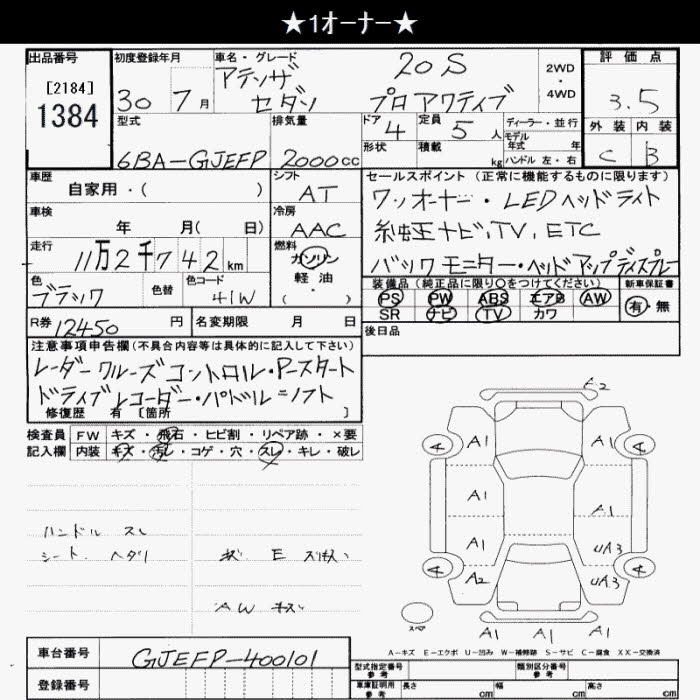 ★1オーナー★
出品番号 初度登録年月 車名・グレード 評価点
[2184] アテンザ 20S 2WD・4WD
1384 30 7月 セダン プロアクティブ 3.5
型式 排気量 ドア 4 定員 5人 ディーラー・並行 外装 内装
モデル年式 年
6BA-GJEFP 2000cc 形状 積載 kg ハンドル 左・右 C B
車歴 シフト セールスポイント (正常に機能するものに限ります)
自家用・( ) AT ワンオーナー・LEDヘッドライト
車検 冷房
年 月( 日) AAC 純正ナビ,TV,ETC
走行 燃料
11万2千742km ガソリン バックモニター・ヘッドアップディスプレー
色 色替 色コード 軽油
ブラック 41W ・( )
装備品 (純正品に限り○をつけてください) 新車保証書
PS PW ABS エアB AW 有・無
SR ナビ TV カワ
R券 12450円 名変期限 月 日 後日品
注意事項申告欄 (不具合内容等は具体的に記入して下さい)
レーダークルーズコントロール・Pスタート
ドライブレコーダー・パドルシフト
修復歴 有 [箇所 ]
検査員 FW キズ・飛石・ヒビ割・リペア跡・×要
記入欄 内装 キズ・汚レ・コゲ・穴・スレ・キレ・破レ
ハンドル スレ
シート ヘタリ
AW キズ
A2
4 A1 A1 4
A1 A1
A1 UA3
4 A2 UA3 4
スペア A1 A1 A1
A-キズ E-エクボ U-凹み W-補修跡 S-サビ C-腐食 XX-交換済
車台番号 GJEFP-400101
型式指定番号 参考 類別区分番号 参考
登録番号 車庫証明用 参考 長さ cm 幅 cm 高さ cm